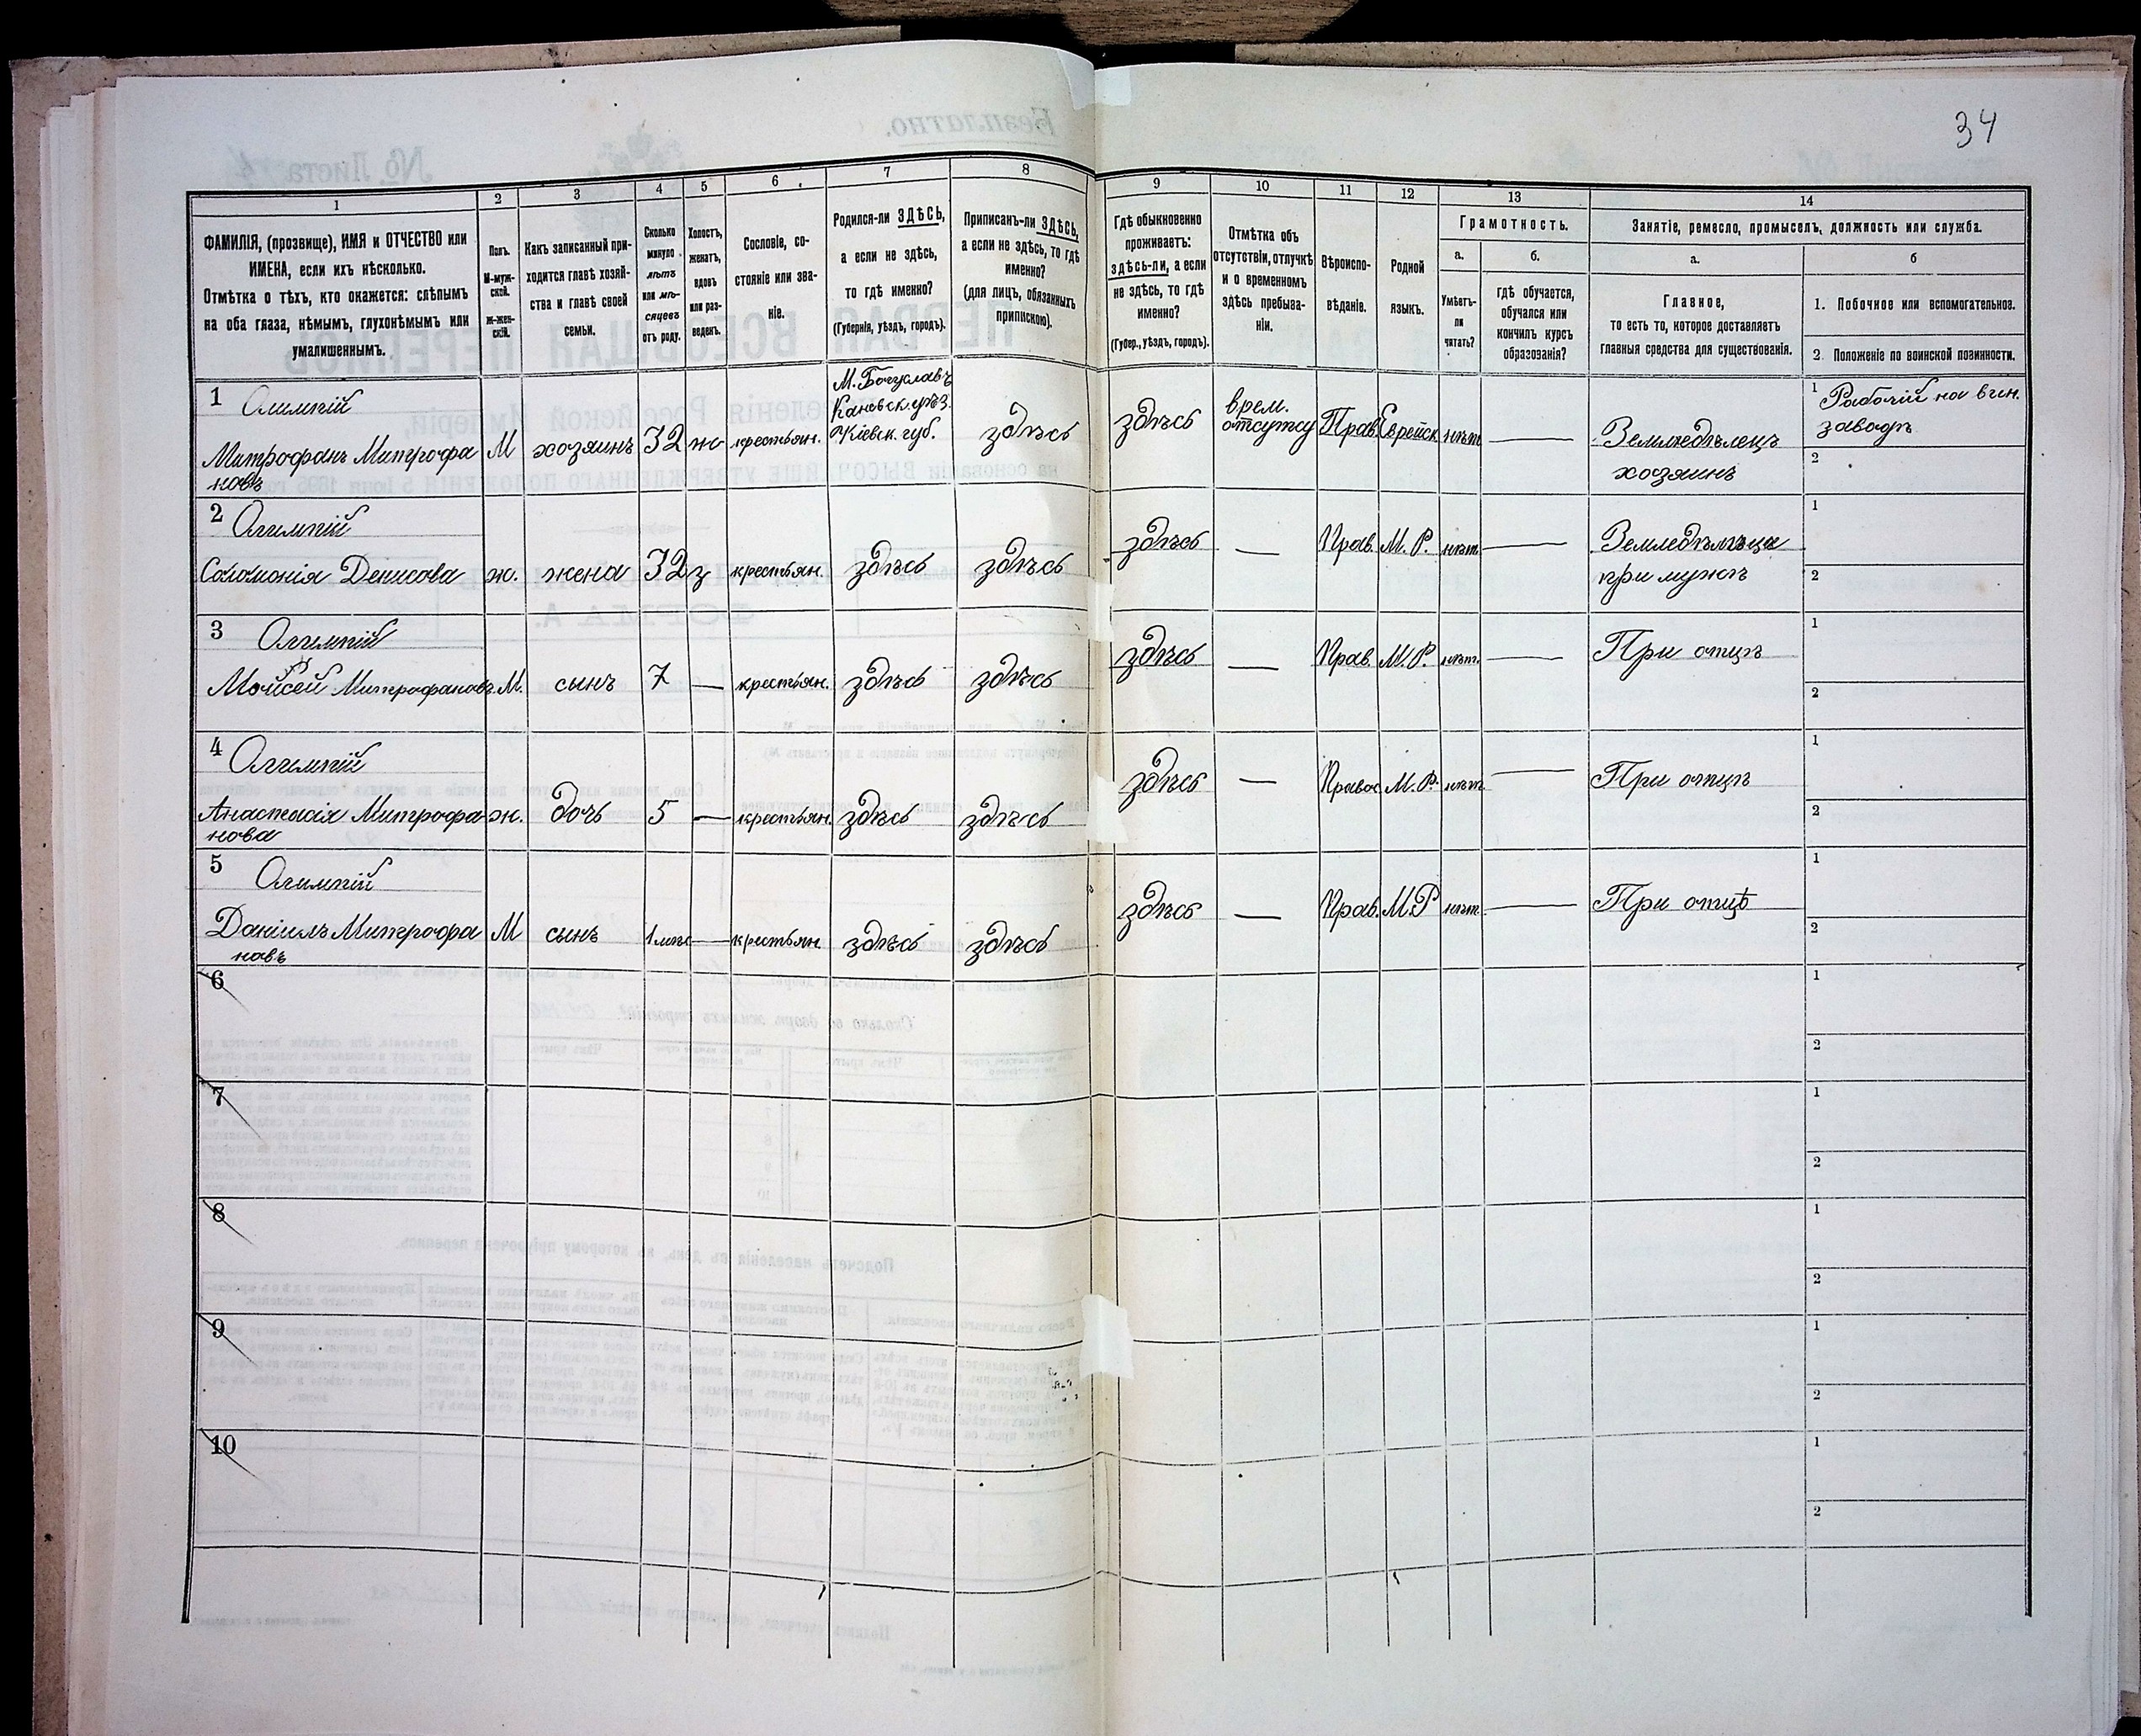 34
1
2
3
4
5
6
7
8
9
10
11
12
13
14
ФАМИЛІЯ, (прозвище), ИМЯ и ОТЧЕСТВО или
ИМЕНА, если ихъ нѣсколько.
Отмѣтка о тѣхъ, кто окажется: слѣпымъ
на оба глаза, нѣмымъ, глухонѣмымъ или
умалишеннымъ.
Полъ.
М-муж-
ской.
ж-жен-
скій.
Какъ записанный при-
ходится главѣ хозяй-
ства и главѣ своей
семьи.
Сколько
минуло
лѣтъ
или мѣ-
сяцевъ
отъ роду.
Холостъ,
женатъ,
вдовъ
или раз-
веденъ.
Сословіе, со-
стояніе или зва-
ніе.
Родился-ли ЗДѢСЬ,
а если не здѣсь,
то гдѣ именно?
(Губернія, уѣздъ, городъ).
Приписанъ-ли ЗДѢСЬ,
а если не здѣсь, то гдѣ
именно?
(для лицъ, обязанныхъ
припискою).
Гдѣ обыкновенно
проживаетъ:
здѣсь-ли, а если
не здѣсь, то гдѣ
именно?
(Губер., уѣздъ, городъ).
Отмѣтка объ
отсутствіи, отлучкѣ
и о временномъ
здѣсь пребыва-
ніи.
Вѣроиспо-
вѣданіе.
Родной
языкъ.
Грамотность.
а.
Умѣетъ-
ли
читать?
б.
гдѣ обучается,
обучался или
кончилъ курсъ
образованія?
Занятіе, ремесло, промыселъ, должность или служба.
а.
Главное,
то есть то, которое доставляетъ
главныя средства для существованія.
б
1. Побочное или вспомогательное.
2. Положеніе по воинской повинности.
1 Олимпій
Митрофанъ Митрофа
новъ
М
хозяинъ
32
ж
крестьян.
М. Богуславъ
Каневск. уѣз.
Кіевск. губ.
здѣсь
здѣсь
врем.
отсутсу
Прав.
Еврейск
нѣт
—
Земледѣлецъ
хозяинъ
1 Рабочій на вин.
заводѣ
2
2 Олимпій
Соломонія Денисова
ж.
жена
32
з
крестьян.
здѣсь
здѣсь
здѣсь
—
Прав.
М. Р.
нѣт.
—
Земледѣлица
при мужѣ
1
2
3 Олимпій
Мойсей Митрофановъ
М.
сынъ
7
—
крестьян.
здѣсь
здѣсь
здѣсь
—
Прав.
М. Р.
нѣт.
—
При отцѣ
1
2
4 Олимпій
Анастасія Митрофа
нова
ж.
дочь
5
—
крестьян.
здѣсь
здѣсь
здѣсь
—
Правос
М. Р.
нѣт
—
При отцѣ
1
2
5 Олимпій
Даніилъ Митрофа
новъ
М
сынъ
—
крестьян.
здѣсь
здѣсь
здѣсь
—
Прав.
М. Р
нѣт.
—
При отцѣ
1
2
6
1
2
7
1
2
8
1
2
9
1
2
10
1
2